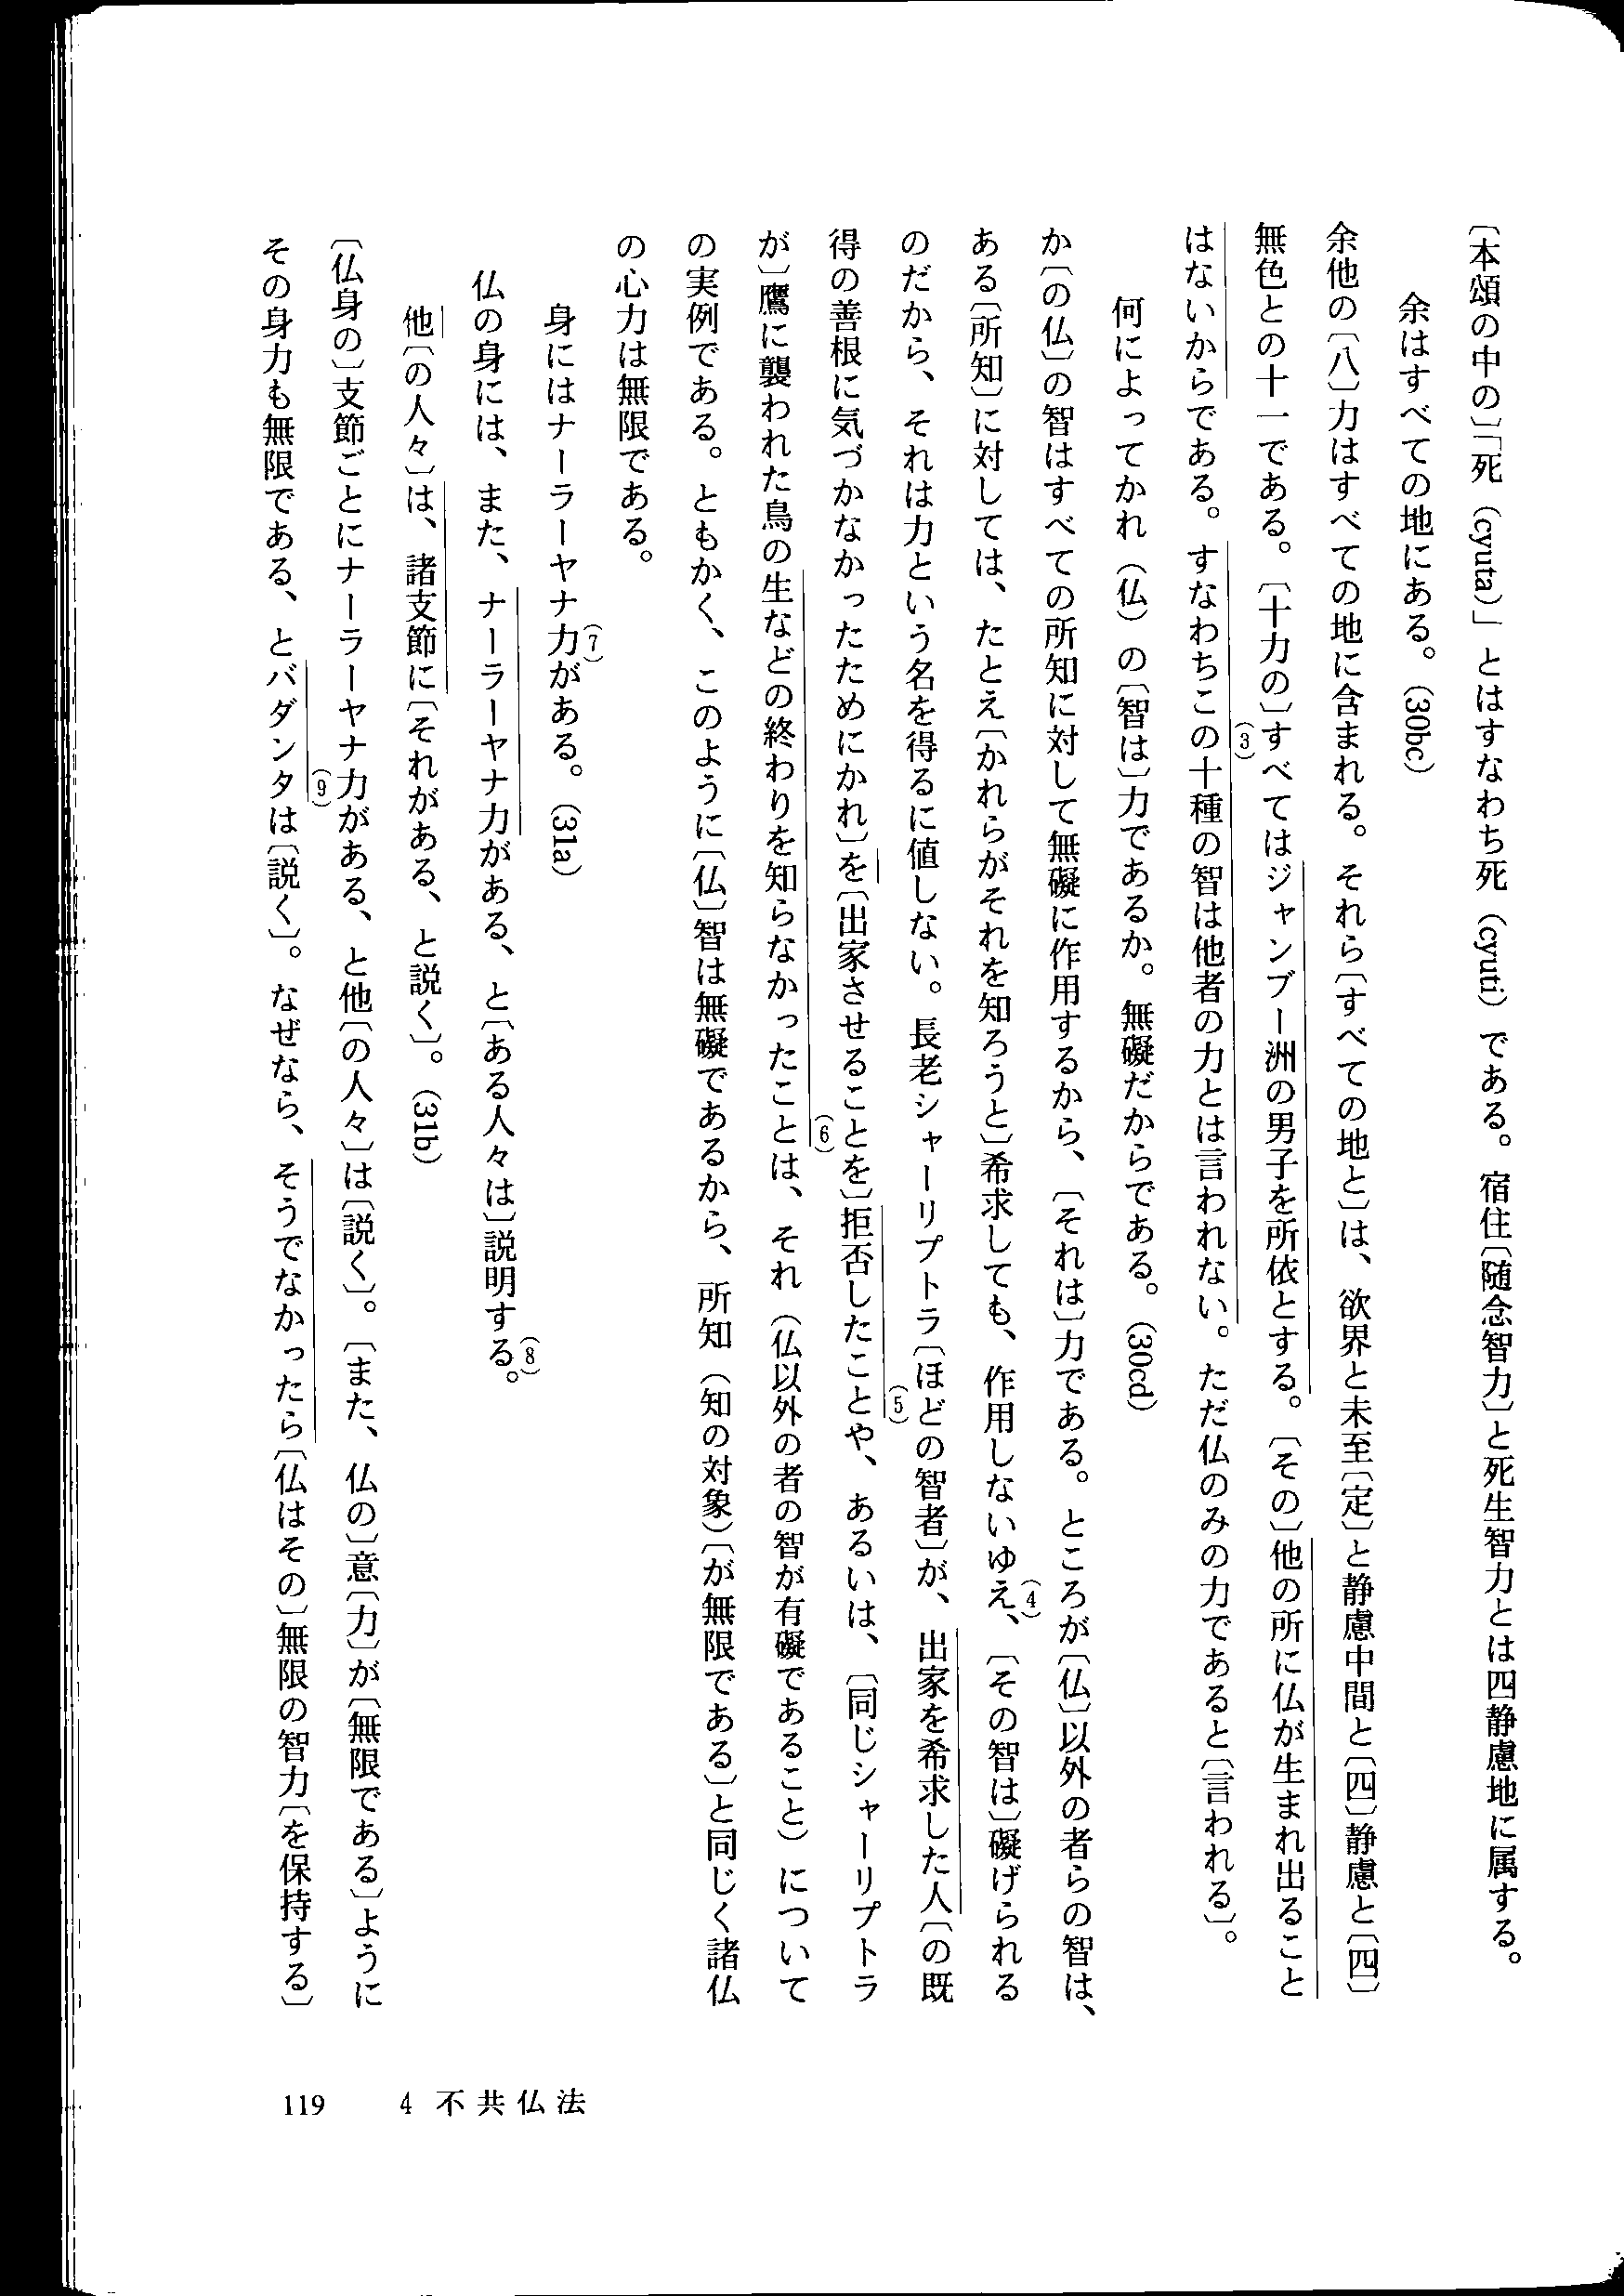 〔本頌の中の〕「死（cyuta）」とはすなわち死（cyuti）である。宿住〔随念智力〕と死生智力とは四静慮地に属する。
余はすべての地にある。（30bc）
余他の〔八〕力はすべての地に含まれる。それら〔すべての地と〕は、欲界と未至〔定〕と静慮中間と〔四〕静慮と〔四〕
無色との十一である。〔十力の〕すべてはジャンブー洲の男子を所依とする。〔その〕他の所に仏が生まれ出ること
はないからである。(3)すなわちこの十種の智は他者の力とは言われない。ただ仏のみの力であると〔言われる〕。
何によってかれ（仏）の〔智は〕力であるか。無礙だからである。（30cd）
か〔の仏〕の智はすべての所知に対して無礙に作用するから、〔それは〕力である。ところが〔仏〕以外の者らの智は、
ある〔所知〕に対しては、たとえ〔かれらがそれを知ろうと〕希求しても、作用しないゆえ、(4)〔その智は〕礙げられる
のだから、それは力という名を得るに値しない。長老シャーリプトラ〔ほどの智者〕が、出家を希求した人〔の既
得の善根に気づかなかったためにかれ〕を〔出家させることを〕拒否したこと(5)や、あるいは、〔同じシャーリプトラ
が〕鷹に襲われた鳥の生などの終わりを知らなかったこと(6)は、それ（仏以外の者の智が有礙であること）について
の実例である。ともかく、このように〔仏〕智は無礙であるから、所知（知の対象）〔が無限である〕と同じく諸仏
の心力は無限である。
身にはナーラーヤナ力(7)がある。（31a）
仏の身には、また、ナーラーヤナ力がある、と〔ある人々は〕説明する(8)。
他〔の人々〕は、諸支節に〔それがある、と説く〕。（31b）
〔仏身の〕支節ごとにナーラーヤナ力がある、と他〔の人々〕は〔説く〕。〔また、仏の〕意〔力〕が〔無限である〕ように
その身力も無限である、とバダンタ(9)は〔説く〕。なぜなら、そうでなかったら〔仏はその〕無限の智力〔を保持する〕
119　4 不共仏法